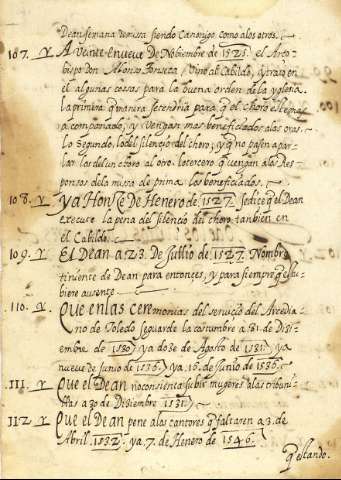 Dean semana de missa siendo canonigo como a los otros.
107. Y A veinte e nueve De Nobiembre de 1525. el Arco-
bispo don Alonso Fonseca, Vino al Cabildo, y trato en
el algunas cosas para la buena orden de la yglesia.
la primera que manera se tendria para que el choro este mas
acompañado, y vengan mas beneficiados a las oras.
lo segundo lo del silencio del choro, y que no pasen a par-
lar los del un choro al otro. lo tercero que vengan a los Res-
ponsos de la missa de prima los beneficiados.
108. Y ya Honse De Henero de 1527. se dice que el Dean
execute la pena del silencio del choro tanbien en
el Cabildo.
109. Y El Dean a 23. de Jullio de 1527. Nombro
tiniente de Dean para entonces, y para siempre que estu-
biere ausente
110. Y. Que en las ceremonias del servicio del Arcedia-
no de Toledo se guarde la costumbre a 31. de Dizi-
embre de 1530. y a doze de Agosto de 1531. y a
nueve de junio de 1536. y a 16. de junio de 1536.
111. Y Que el Dean no consienta subir mugeres a las tribuni-
llas a 30 de Diziembre 1531.
112 Y Que el Dean pene a los cantores que faltaren a 3. de
Abril. 1532. y a 7. de Henero de 1546.
que estando.